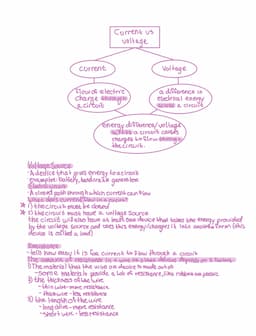 Current vs
Voltage
Current
Voltage
flow of electric
charge through
a circuit
a difference in
electrical energy
across a circuit
energy difference/voltage
across a circuit causes
charges to flow through
the circuit.
Voltage Source
- A device that gives energy to a circuit
examples: battery, hand crank generator
Electric circuit
- A closed path through which current can flow
What does current flow in a circuit?
* 1) the circuit must be closed
* 2) the circuit must have a voltage source
the circuit will also have at least one device that takes the energy provided
by the voltage source and uses this energy/changes it into another form (this
device is called a load)
Resistance
- tells how easy it is for current to flow through a circuit
The amount of resistance in a wire or other device depends on 3 factors
1) The material that the wire or device is made out of
- some materials provide a lot of resistance, like rubber or plastic
2) the thickness of the wire
- thin wire - more resistance
- thick wire - less resistance
3) the length of the wire
- long wire - more resistance
- short wire - less resistance